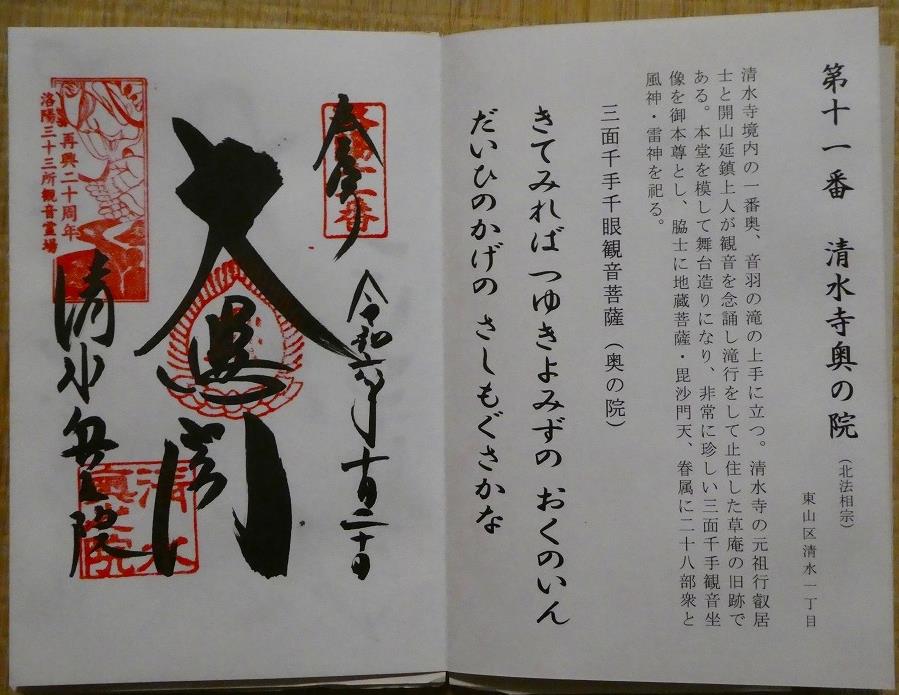 第十一番 清水寺奥の院(北法相宗)
東山区清水一丁目
清水寺境内の一番奥、音羽の滝の上手に立つ。清水寺の元祖行叡居
士と開山延鎮上人が観音を念誦し滝行をして止住した草庵の旧跡で
ある。本堂を模して舞台造りになり、非常に珍しい三面千手観音坐
像を御本尊とし、脇士に地蔵菩薩・毘沙門天、眷属に二十八部衆と
風神・雷神を祀る。
三面千手千眼観音菩薩(奥の院)
きてみれば つゆきよみずの おくのいん
だいひのかげの さしもぐさかな
奉拝
令和六年十月二十日
大悲閣
清水奥之院
再興二十周年
洛陽三十三所観音霊場
清水
奥之院